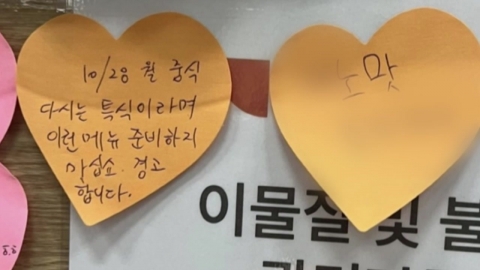 10/28 월 중식
다시는 특식이라며
이런 메뉴 준비하지
마십쇼. 경고
합니다.
노맛
이물질 및 불